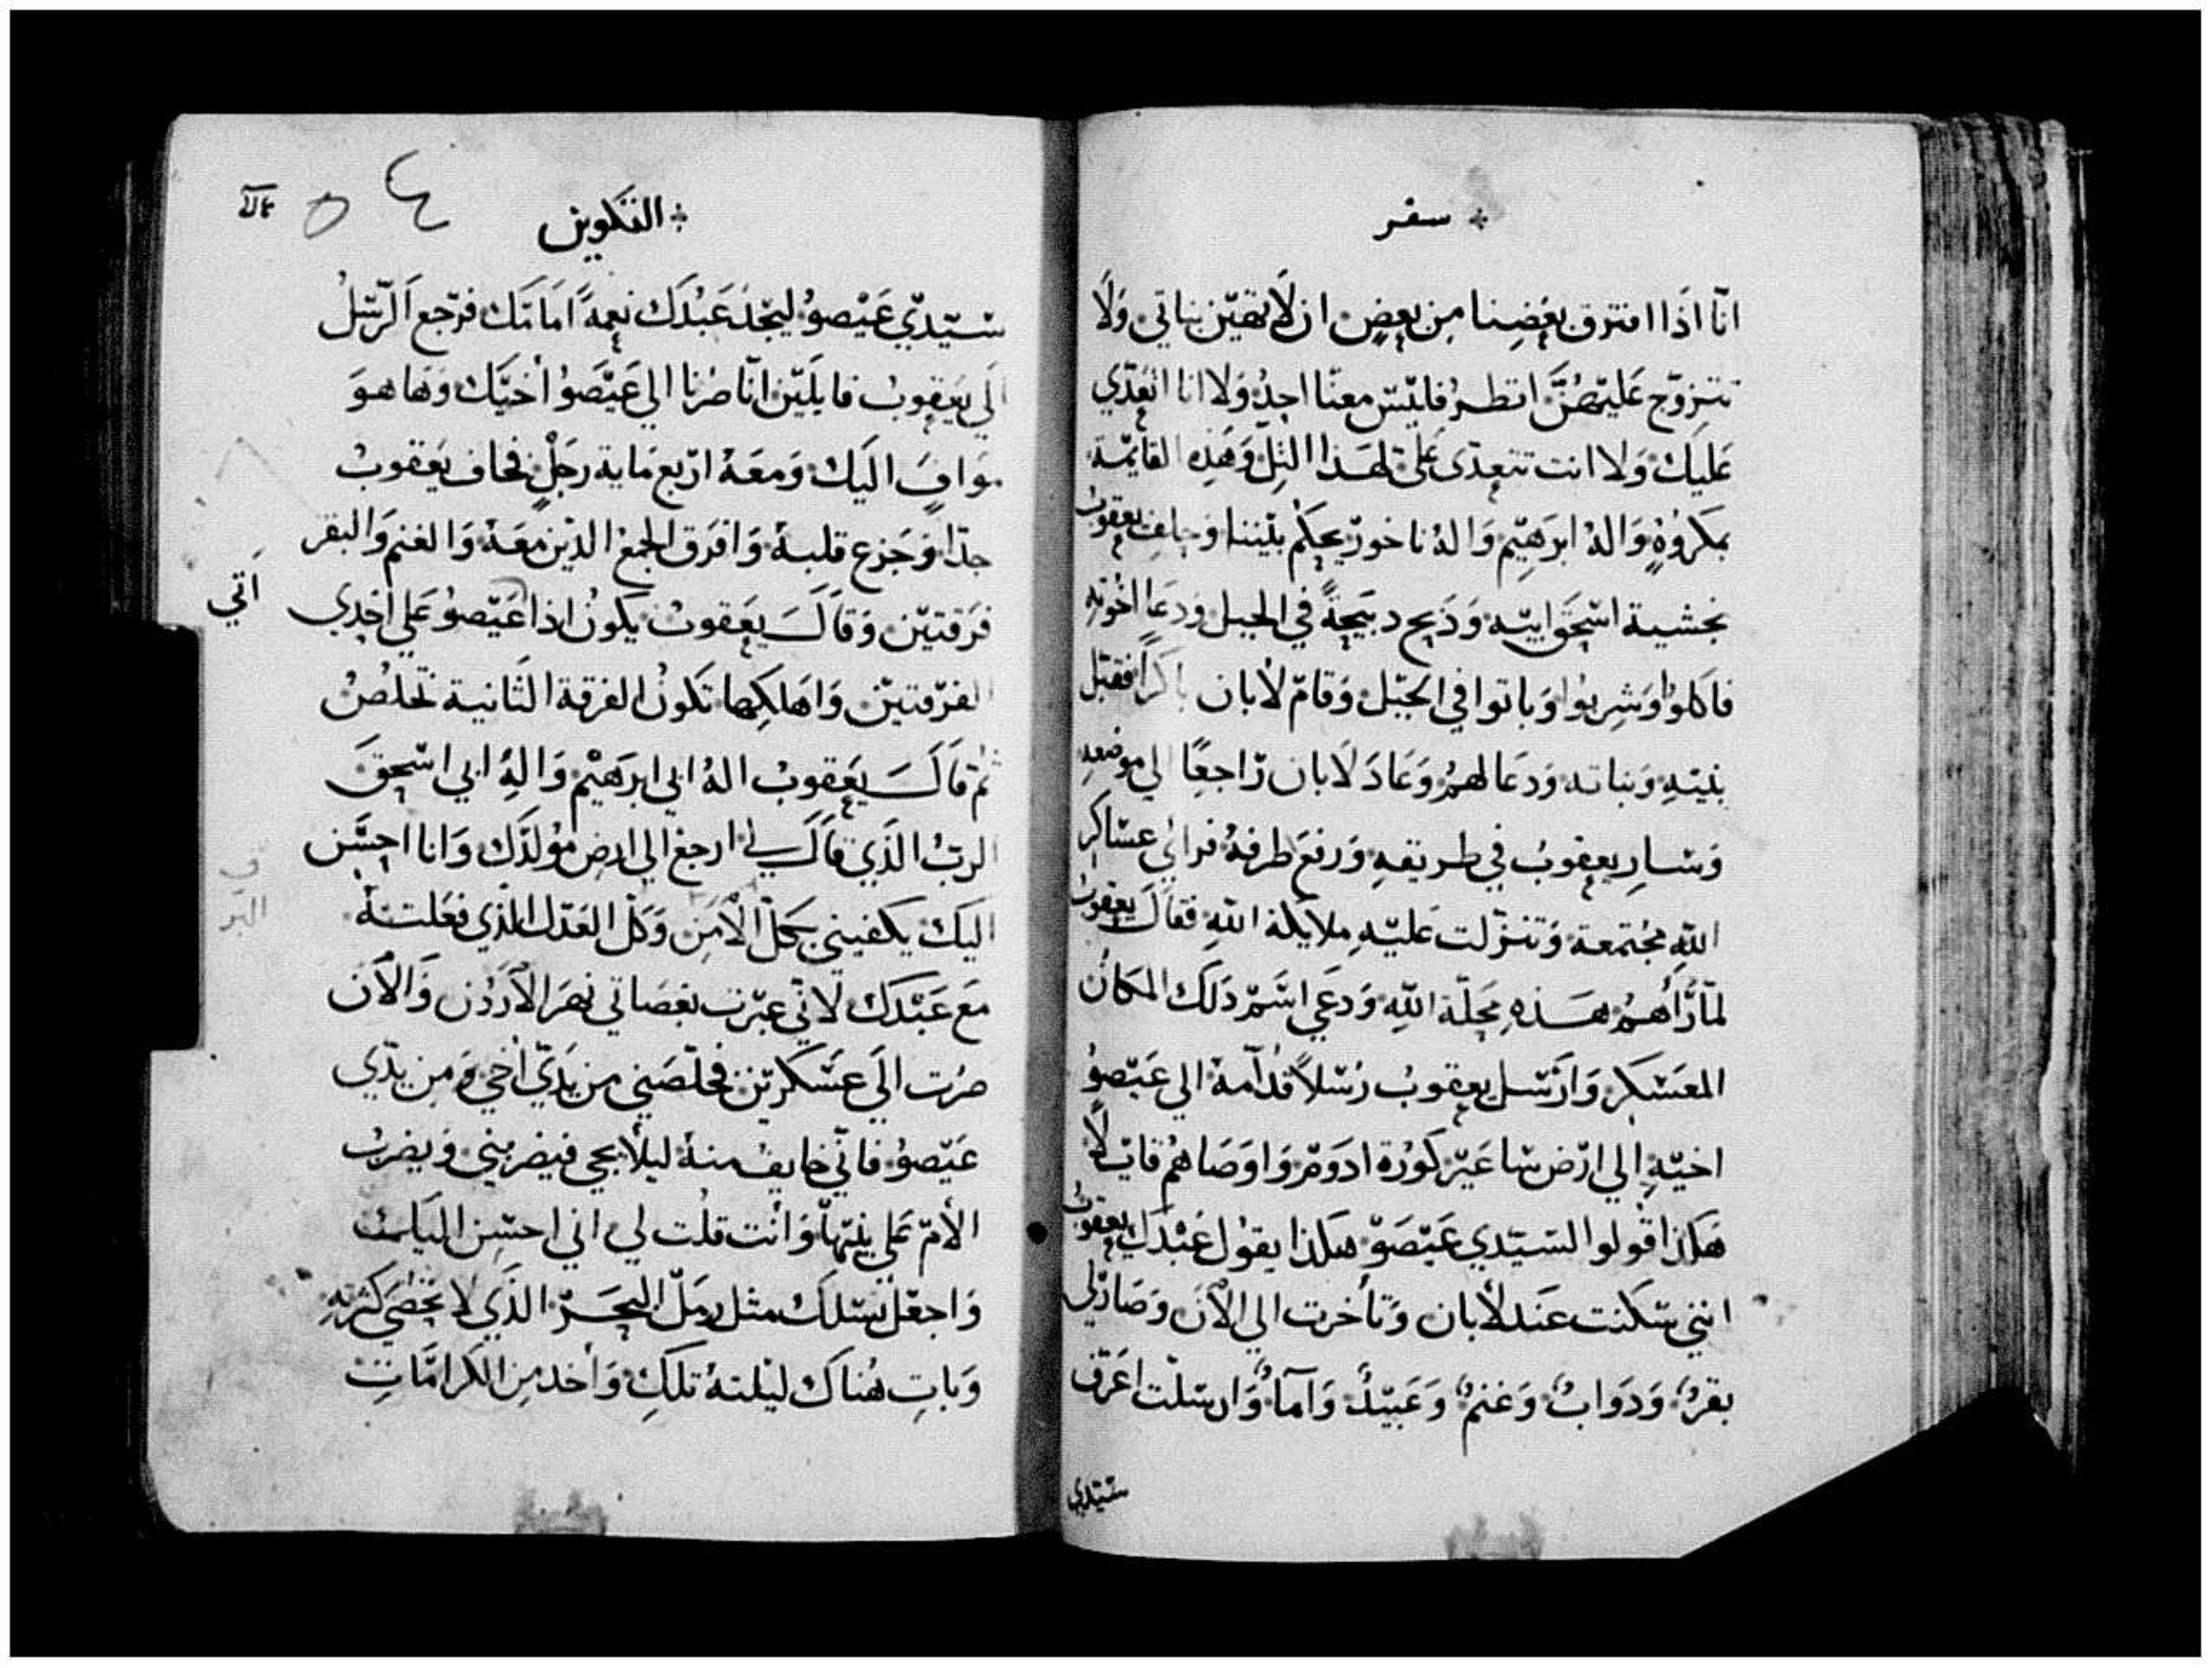 سفر
انّا اذَا افترق بعَضِنا مِن بعضٍ ان لَا تهيّن بناتي وَلَا
تتزوّج عَليّهنَّ انظرُ فليّس معنّا احدُ وَلا انا اتعَدّي
عَليكَ وَلا انت تتعدّى عَليّ لهَذا التِلّ وَهَذِه القايمّة
بمكرُوُهٍ وَالهُ ابرَهيّم وَالهُ ناحورّ يحكمُ بيّننا وَحلف يعقوبُ
بخشية اسّحَق ابيّه وَذَبح دبيَحةً في الجبل وَدعَا اخُوتهِ
فاكلوُا وَشرِبوُا وَباتوا في الجَبّل وَقامّ لابان باكراً فقبّل
بنيّهِ وَبناته وَدعَا لهمُ وَعَادَ لَابان رّاجعًا الي موضعهِ
وَسّارِ يعقوبُ في طريقهِ وَرفعَ طرفهُ فرائي عسّاكر
اللهِ مجُتمعة وَتنزّلت عَليّهِ ملايكة اللهِ فقاَلَ يعقوبُ
لمّا رَّأهمُ هَذهِ محَلّة اللهِ وَدعَي اسّمّ دَلكَ المكَانُ
المعَسّكر وَارَسّل يعقوبُ رُسّلاً قدُّآمهُ الي عَيّصوُ
اخيّهِ الي ارّض سّاعَيّر كوُرَة ادَومّ وَاوَصَاهمُ قايّلاً
هَكذا قوُلوا لسّيّدي عَيّصَوّ هكذا يقوُل عَبْدَكَ يعقوبُ
انني سّكنت عَند لأبان وَتأخرت الي الآنَ وَصَارّلي
بقرُ وَدوَابُ وَغنمُ وَعَبيّدُ وَآمآءُ وَارسّلّت اعَرّف
سّيّدي
التكوين
سّيّديّ عَيّصوُ ليجّدَ عَبْدَكَ نعِمةً اَمَامَكَ فرّجع اَلرّسّلُ
الَي يَعقوبُ قايلَيّن انّا صرُنا الي عَيّصَوُ أخيّك وَهَا هوَ
موَافٍ اليَك وَمعَهُ ارّبع مَاية رجَلٍ فخاف يَعقوبُ
جدّا وَجَزع قلبهُ وَافرَق الجمعُ الذّينَ معَهُ وَالغنمَ وَالبقر
فرَقتيّن وَقاَلَ يعَقوبُ يكوُنُ اذا عَيّصوُ عَلي احَدي
اَتي
الفرّقتيّن وَاهَلكِها تكَونُ الفرقة الثَانية تخَلصُ
ثمّ قاَلَ يَعقوبُ الهُ ابي ابرَهيْم وَالهِ ابي اسّحقَ
الربُ الذَي قاَلَ لي ارجعَ الي ارض موُلدّكَ وَانا احسّن
اليَكَ يكفيني بكَلّ الأمَنِ وَكلّ العَدّل الذّي فعَلتهُ
مَع عَبْدَكَ لأنّي عبّرت بعَصَاتي نهَر الأردُنَ وَالأنَ
صرُت الَي عَسّكريّن فخلّصَني من يَديّ أخي وَمن يدّي
عَيّصوُ فانّي خايفُ منهُ ليلأ يجي فيضربني وَيضربُ
الأمّ عَلي بنيّها وَأنت قلُت لي اني احسّن اليَك
وَاجعَل نسّلكَ مثل رمَلّ البحَرّ الذّي لا يحُصَى كثرتهِ
وَباتِ هُناكَ ليلتهُ تلكَ وَأخد من الكَرامَّاتِ